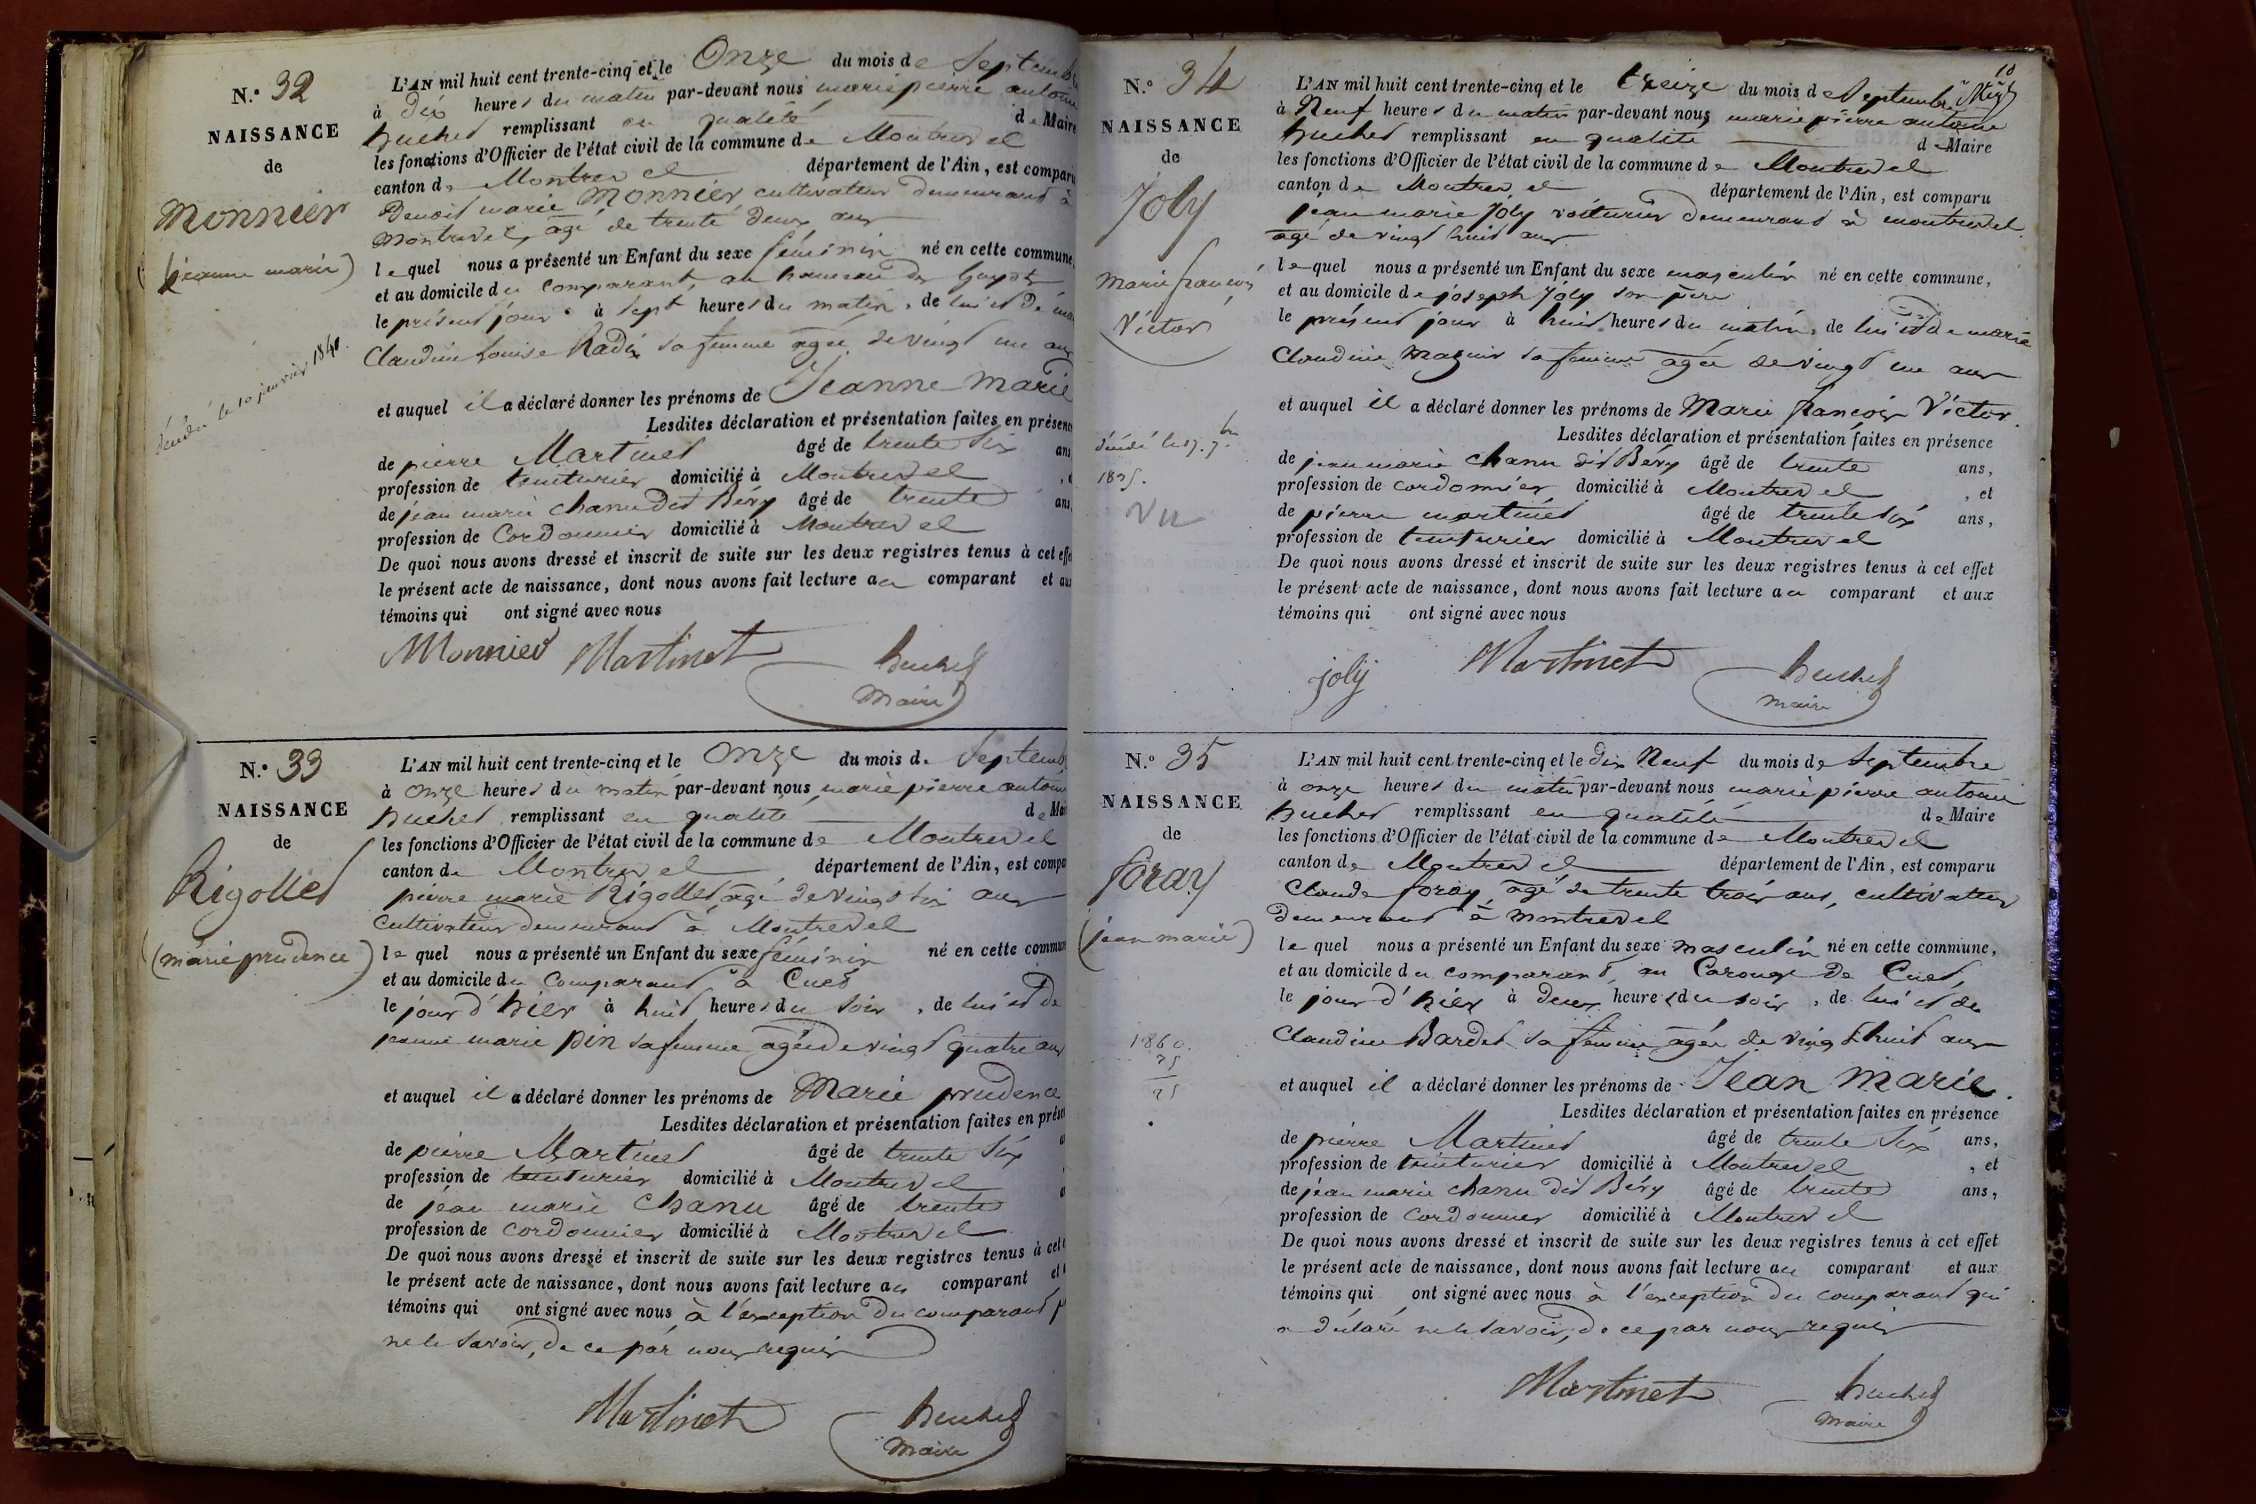 N.° 32
NAISSANCE
de
Monnier
(jeanne marie)
décédé le 10 janvier 1840.
L'AN mil huit cent trente-cinq et le Onze du mois de Septembre
à dix heures du matin par-devant nous marie pierre antoine
huchet remplissant en qualité de Maire
les fonctions d'Officier de l'état civil de la commune de Montrevel
canton de Montrevel département de l'Ain, est comparu
Benoit marie Monnier cultivateur demeurant à
Montrevel, agé de trente deux ans
lequel nous a présenté un Enfant du sexe féminin né en cette commune,
et au domicile du comparant, au hameau des
le présent jour à sept heures du matin, de lui et de
Claudine Louise Radix sa femme agée de vingt un ans
et auquel il a déclaré donner les prénoms de Jeanne Marie
Lesdites déclaration et présentation faites en présence
de pierre Martinet âgé de trente Six ans
profession de teinturier domicilié à Montrevel
de jean marie Chanu dit Béry âgé de trente ans
profession de Cordonnier domicilié à Montrevel
De quoi nous avons dressé et inscrit de suite sur les deux registres tenus à cet effet
le présent acte de naissance, dont nous avons fait lecture au comparant et aux
témoins qui ont signé avec nous
Monnier Martinet huchet
Maire
N.° 33
NAISSANCE
de
Rigollet
(marie prudence)
L'AN mil huit cent trente-cinq et le Onze du mois de Septemb
à onze heures du matin par-devant nous marie pierre antoine
huchet remplissant en qualité de Mai
les fonctions d'Officier de l'état civil de la commune de Montrevel
canton de Montrevel département de l'Ain, est compa
pierre marie Rigollet, agé de vingt six ans
cultivateur demeurant à Montrevel
lequel nous a présenté un Enfant du sexe féminin né en cette commun
et au domicile du comparant à Cuet
le jour d'hier à huit heures du soir, de lui et de
jeanne marie pin sa femme agée de vingt quatre ans
et auquel il a déclaré donner les prénoms de Marie prudence
Lesdites déclaration et présentation faites en présen
de pierre Martinet âgé de trente Six
profession de teinturier domicilié à Montrevel
de jean marie Chanu âgé de trente
profession de cordonnier domicilié à Montrevel
De quoi nous avons dressé et inscrit de suite sur les deux registres tenus à cet
le présent acte de naissance, dont nous avons fait lecture au comparant et
témoins qui ont signé avec nous à l'exception du comparant p
ne le savoir, de ce par nous requis
Martinet huchet
Maire
10
N.° 34
NAISSANCE
de
Joly
Marie françois
Victor
décédé le 17. 7bre
1835.
Vu
L'AN mil huit cent trente-cinq et le treize du mois de Septembre
à Neuf heures du matin par-devant nous marie pierre antoine
huchet remplissant en qualité de Maire
les fonctions d'Officier de l'état civil de la commune de Montrevel
canton de Montrevel département de l'Ain, est comparu
jean marie Joly voiturier demeurant à montrevel
agé de vingt huit ans.
lequel nous a présenté un Enfant du sexe masculin né en cette commune,
et au domicile de joseph Joly son père
le présent jour à huit heures du matin, de lui et de marie
Claudine Magnin sa femme agée de vingt un ans
et auquel il a déclaré donner les prénoms de Marie françois Victor.
Lesdites déclaration et présentation faites en présence
de jean marie Chanu dit Béry âgé de trente ans,
profession de cordonnier domicilié à Montrevel, et
de pierre martinet âgé de trente Six ans,
profession de teinturier domicilié à Montrevel
De quoi nous avons dressé et inscrit de suite sur les deux registres tenus à cet effet
le présent acte de naissance, dont nous avons fait lecture au comparant et aux
témoins qui ont signé avec nous
joly Martinet huchet
maire
N.° 35
NAISSANCE
de
foray
(jean marie)
1860.
35
25
L'AN mil huit cent trente-cinq et le dix Neuf du mois de Septembre
à onze heures du matin par-devant nous marie pierre antoine
huchet remplissant en qualité de Maire
les fonctions d'Officier de l'état civil de la commune de Montrevel
canton de Montrevel département de l'Ain, est comparu
Claude foray, agé de trente trois ans, cultivateur
demeurant à Montrevel
lequel nous a présenté un Enfant du sexe masculin né en cette commune,
et au domicile du comparant, au Carouge de Cuet,
le jour d'hier à deux heures du soir, de lui et de
Claudine Bardet sa femme agée de vingt huit ans
et auquel il a déclaré donner les prénoms de Jean Marie.
Lesdites déclaration et présentation faites en présence
de pierre Martinet âgé de trente Six ans,
profession de teinturier domicilié à Montrevel, et
de jean marie chanu dit Béry âgé de trente ans,
profession de cordonnier domicilié à Montrevel
De quoi nous avons dressé et inscrit de suite sur les deux registres tenus à cet effet
le présent acte de naissance, dont nous avons fait lecture au comparant et aux
témoins qui ont signé avec nous à l'exception du comparant qui
a déclaré ne le savoir, de ce par nous requis
Martinet huchet
maire